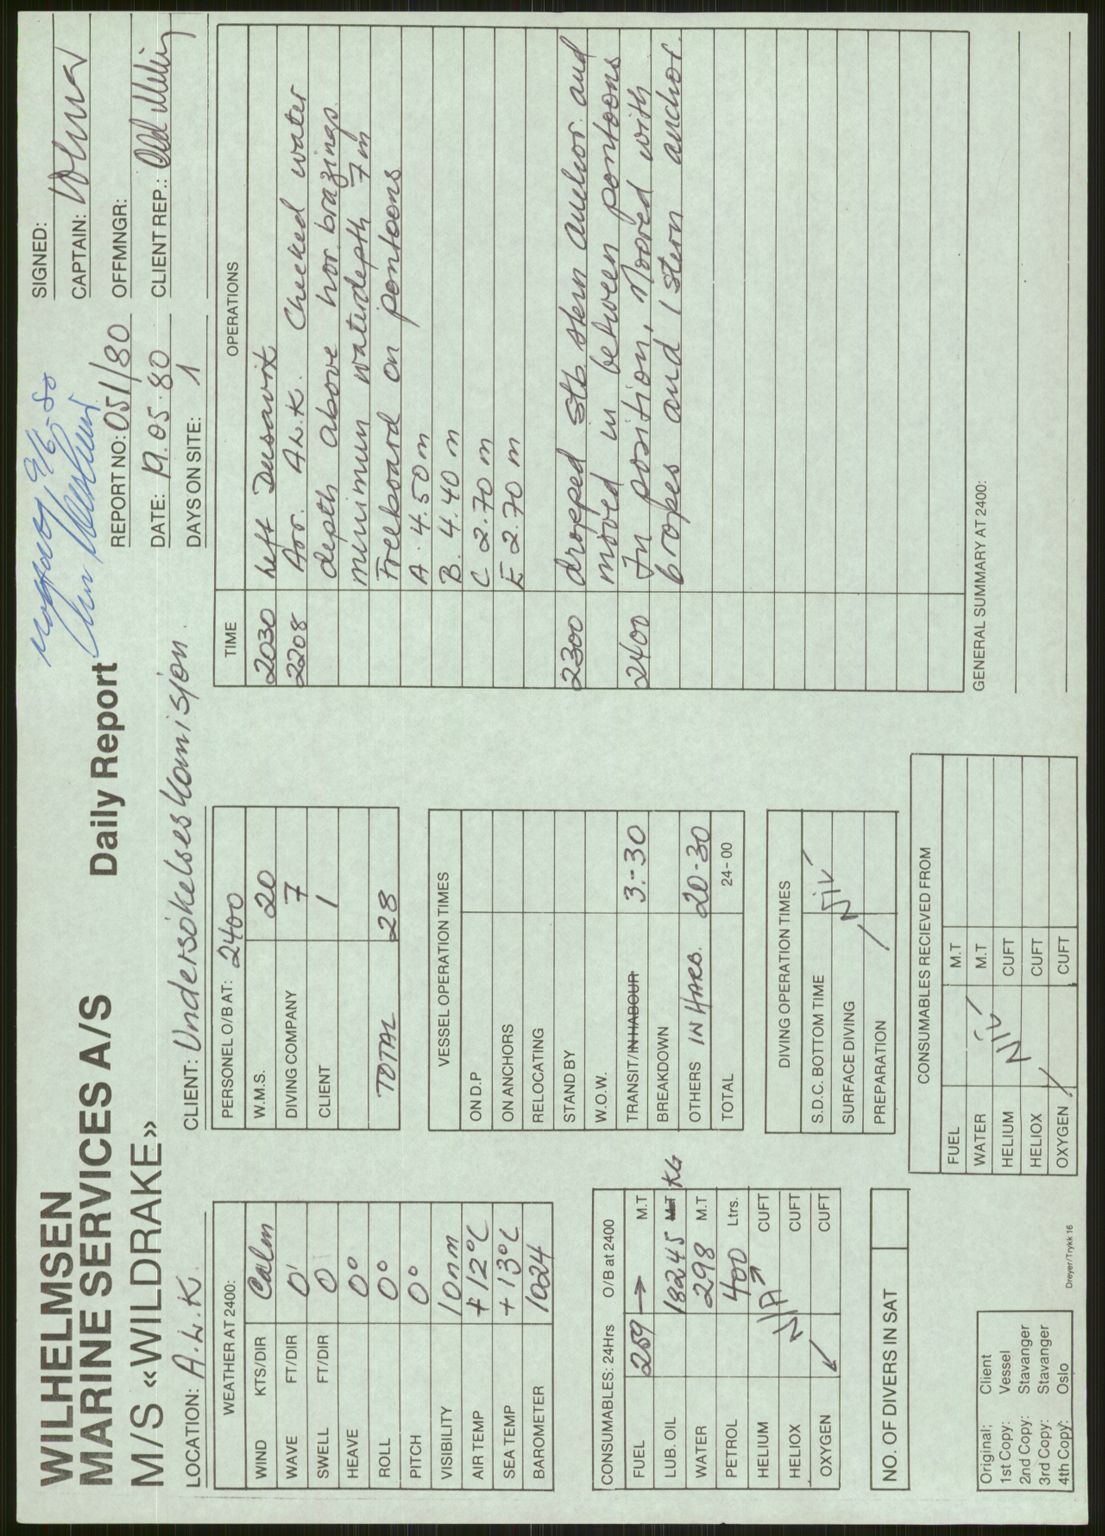 WILHELMSEN
MARINE SERVICES A/S
M/S «WILDRAKE»
Daily Report
9/6-80
REPORT NO: 051/80
DATE: 19.05.80
DAYS ON SITE: 1
SIGNED:
CAPTAIN:
OFFMNGR:
CLIENT REP.:
LOCATION: A.L.K.
CLIENT: Undersökelseskomisjon.
WEATHER AT 2400:
WIND KTS/DIR Calm
WAVE FT/DIR 0'
SWELL FT/DIR 0
HEAVE 0°
ROLL 0°
PITCH 0°
VISIBILITY 10nm
AIR TEMP +12°C
SEA TEMP +13°C
BAROMETER 1024
CONSUMABLES: 24Hrs O/B at 2400
FUEL 259 → M.T
LUB. OIL 18245 M.T KG
WATER 298 M.T
PETROL 400 Ltrs.
HELIUM N/A CUFT
HELIOX CUFT
OXYGEN CUFT
NO. OF DIVERS IN SAT
Original: Client
1st Copy: Vessel
2nd Copy: Stavanger
3rd Copy: Stavanger
4th Copy: Oslo
Dreyer/Trykk 16
PERSONEL O/B AT: 2400
W.M.S. 20
DIVING COMPANY 7
CLIENT 1
TOTAL 28
VESSEL OPERATION TIMES
ON D.P
ON ANCHORS
RELOCATING
STAND BY
W.O.W.
TRANSIT/IN HABOUR 3.-30
BREAKDOWN
OTHERS IN HARB. 20-30
TOTAL 24-00
DIVING OPERATION TIMES
S.D.C. BOTTOM TIME
SURFACE DIVING NIV
PREPARATION
CONSUMABLES RECIEVED FROM
FUEL M.T
WATER M.T
HELIUM NIV CUFT
HELIOX CUFT
OXYGEN CUFT
TIME OPERATIONS
2030 Left Dusavik
2208 Arr. A.L.K. Checked water
depth above hor. brazings
minimum waterdepth 7m
Freeboard on pontoons
A. 4.50 m
B. 4.40 m
C 2.70 m
E 2.70 m
2300 dropped stb stern anchor and
moved in between pontoons
2400 In position. Moored with
6 ropes and 1 stern anchor.
GENERAL SUMMARY AT 2400: